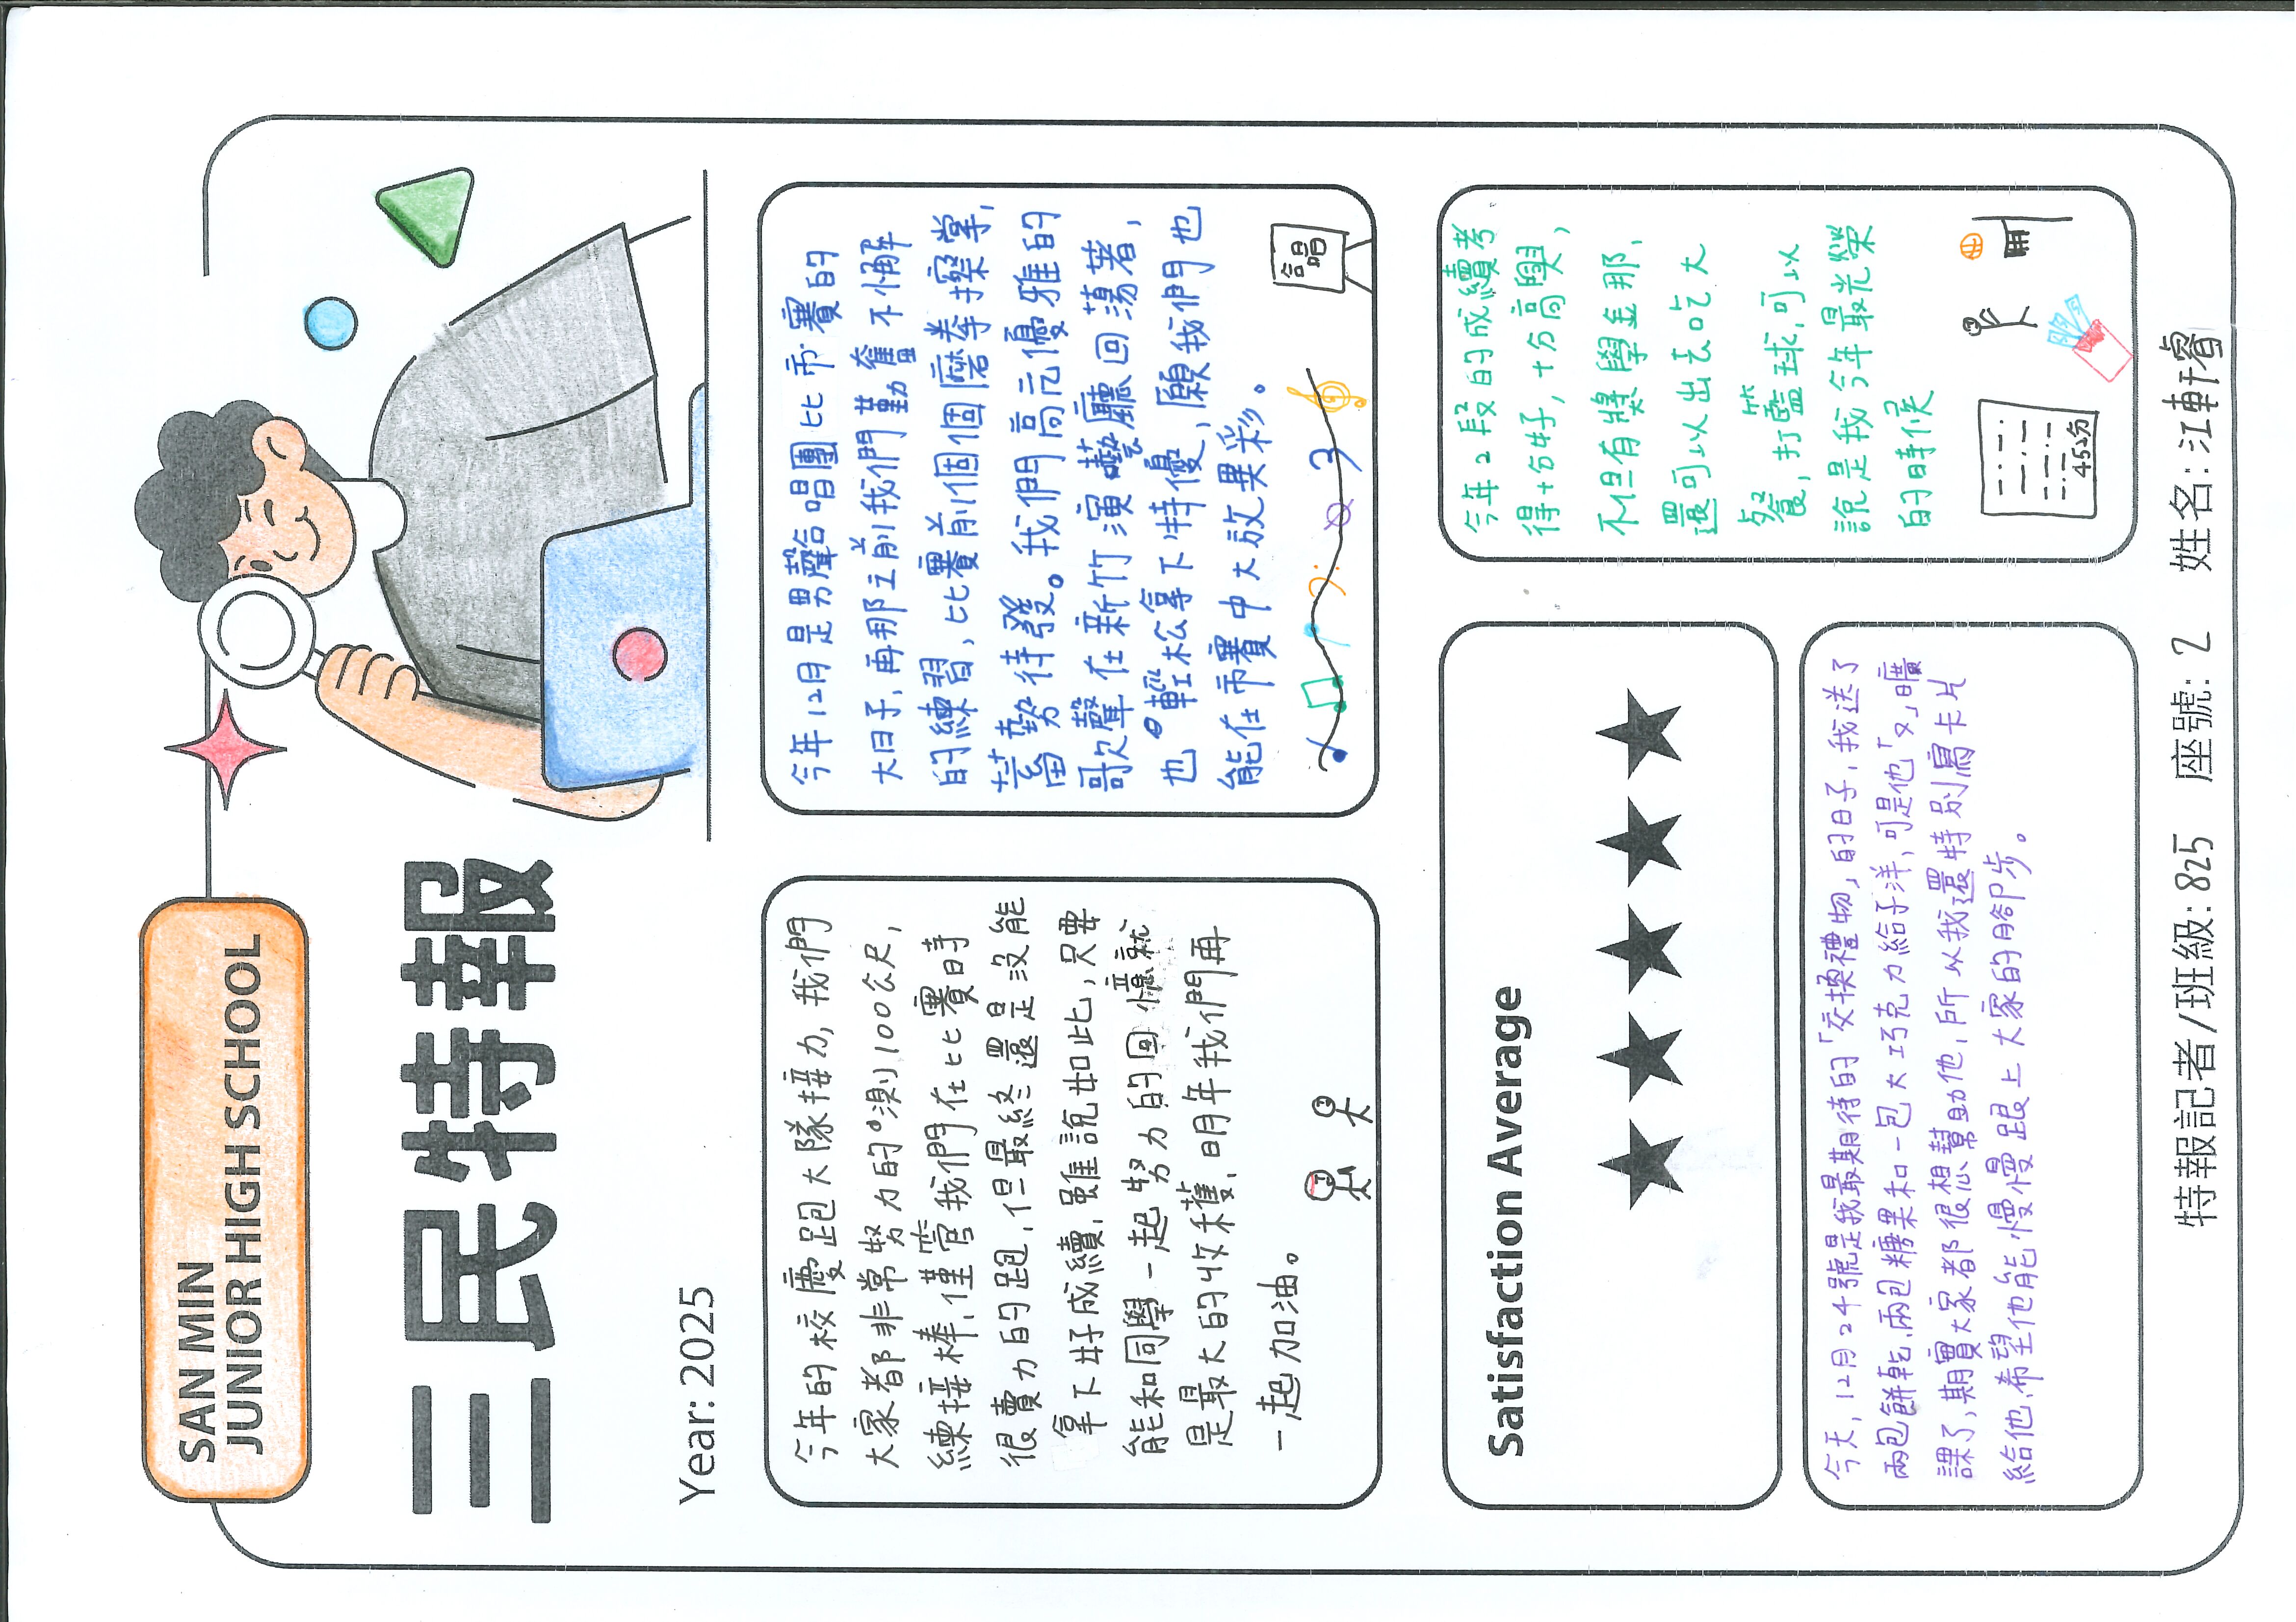 SAN MIN
JUNIOR HIGH SCHOOL
三民特報
Year: 2025
今年的校慶跑大隊接力,我們
大家都非常努力的測100公尺,
練接棒,僅管我們在比賽時
很賣力的跑,但最終還是沒能
拿下好成績,雖說如此,只要
能和同學一起努力的回憶就
是最大的收穫,明年我們再
一起加油。
今年12月是男聲合唱團比市賽的
大日子,再那之前我們勤奮不懈
的練習,比賽前個個磨拳擦掌,
蓄勢待發。我們高亢優雅的
歌聲在新竹演藝廳回蕩著,
也輕松拿下特優,願我們也
能在市賽中大放異彩。
合唱
Satisfaction Average
★★★★★
今年2段的成績考
得十分好,十分高興,
不但有獎學金那,
還可以出去吃大
餐,打籃球,可以
說是我今年最光榮
的時候
452分
今天,12月24號是我最期待的「交換禮物」的日子,我送了
兩包餅乾,兩包糖果和一包大巧克力給子洋,可是他「又」曠
課了,期實大家都很想幫助他,所以我還特別寫卡片
給他,希望他能慢慢跟上大家的腳步。
特報記者/班級:825 座號:2 姓名:江軒睿